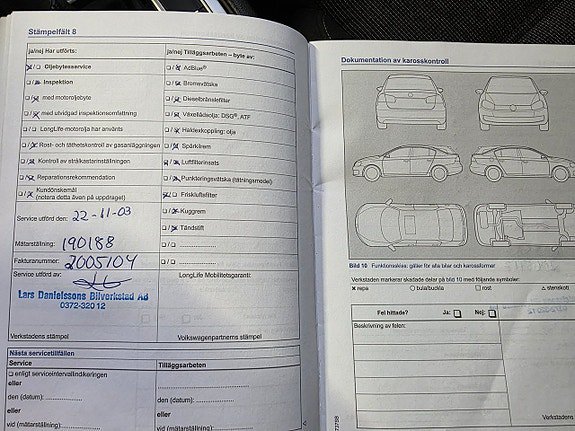 Stämpelfält 8
ja/nej Har utförts:
ja/nej Tilläggsarbeten – byte av:
Oljebytesservice
AdBlue®
Inspektion
Bromsvätska
med motoroljebyte
Dieselbränslefilter
med utvidgad inspektionsomfattning
Växellådsolja: DSG®, ATF
LongLife-motorolja har använts
Haldexkoppling: olja
Rost- och täthetskontroll av gasanläggningen
Spärrklrem
Kontroll av strålkastarinställningen
Luftfilterinsats
Reparationsrekommendation
Punkteringsvätska (tätningsmedel)
Kundönskemål
(notera detta även på uppdraget)
Friskluftsfilter
Kuggrem
Service utförd den: 22-11-03
Tändstift
Mätarställning: 190188
Fakturanummer: 2005104
Service utförd av:
LongLife Mobilitetsgaranti:
Lars Danielssons Bilverkstad AB
0372-320 12
Verkstadens stämpel
Volkswagenpartnerns stämpel
Nästa servicetillfällen
Service
Tilläggsarbeten
enligt serviceintervallindikeringen
eller
eller
den (datum):
den (datum):
eller
eller
vid (mätarställning):
vid (mätarställning):
Dokumentation av karosskontroll
Bild 10 Funktionsskiss: gäller för alla bilar och karossformer
Verkstaden markerar skadade delar på bild 10 med följande symboler:
x repa
○ bula/buckla
□ rost
△ stenskott
Fel hittade?
Ja:
Nej:
Beskrivning av felen:
Verkstadens